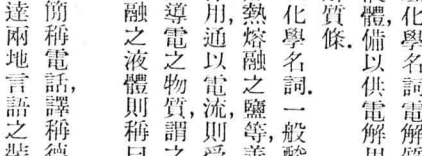 化學名詞電解質
液體,備以供電解用
質條.
化學名詞.一般酸
熱熔融之鹽等,善
用,通以電流,則受
導電之物質,謂之
融之液體則稱曰
簡稱電話,譯稱德
達兩地言語之裝